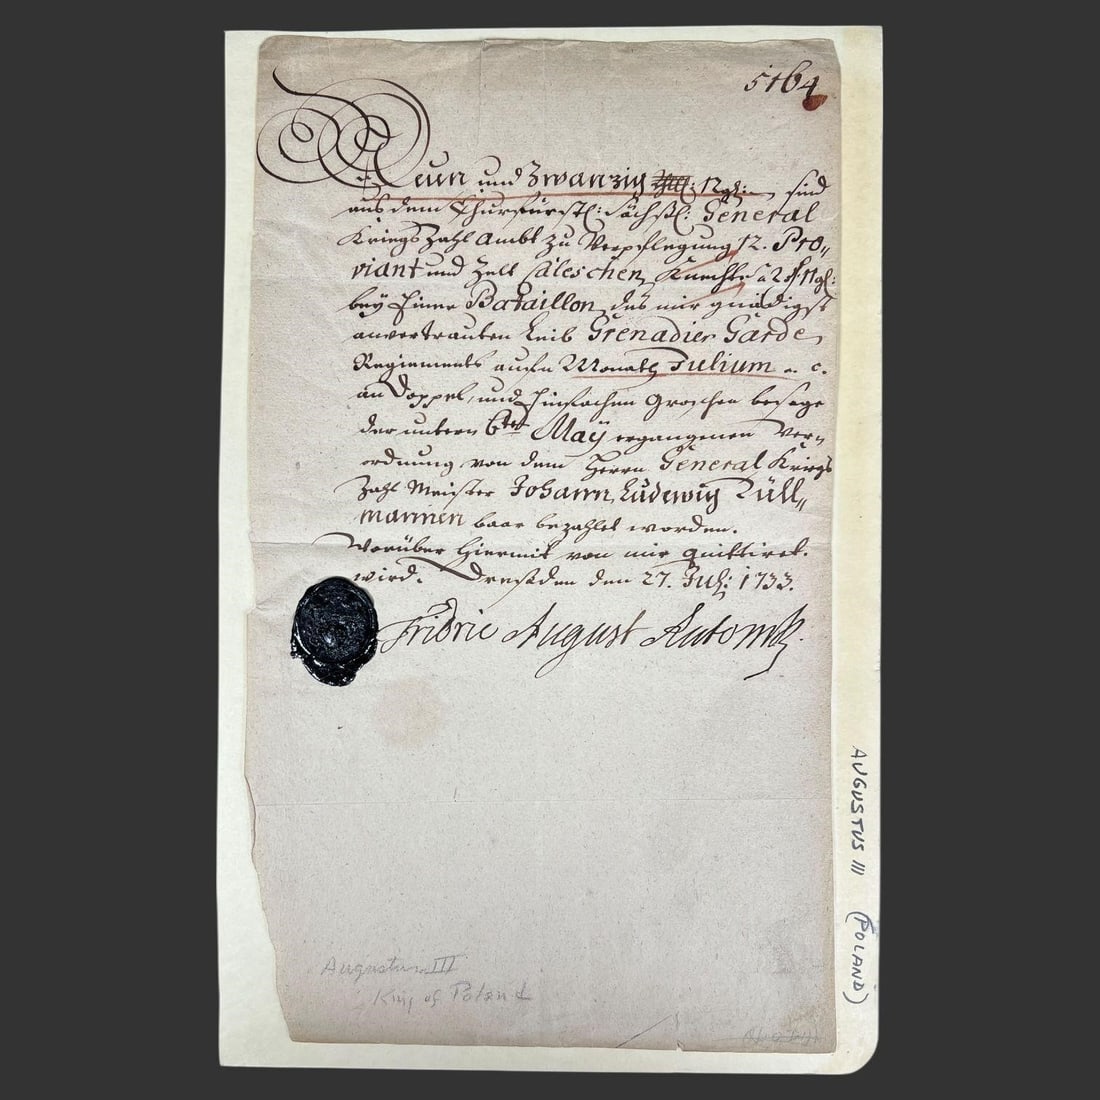 5164
Neun und Zwanzig Thlr: 12 gl: sind
aus dem Churfürstl: Sächßl: General
Kriegs Zahl Ambt zu Verpflegung 12. Pro„
viant und Zelt Caleschen Knechte à 2 f. 11 gl:
bey Einer Bataillon, des mir gnädigst
anvertrauten Leib Grenadier Garde
Regiements aufn Monath Julium a. c.
an Doppel, und Einfachen Groschen besage
der untern 6ten May ergangenen Ver„
ordnung von dem Herrn General Kriegs
Zahl Meister Johann Ludewig Züll„
mannen baar bezahlet worden.
Worüber hiermit von mir quittiret
wird. Dreßden den 27. Julij 1733.
Fridric August Rutowsky
AUGUSTUS III (POLAND)
Augustus III
King of Poland